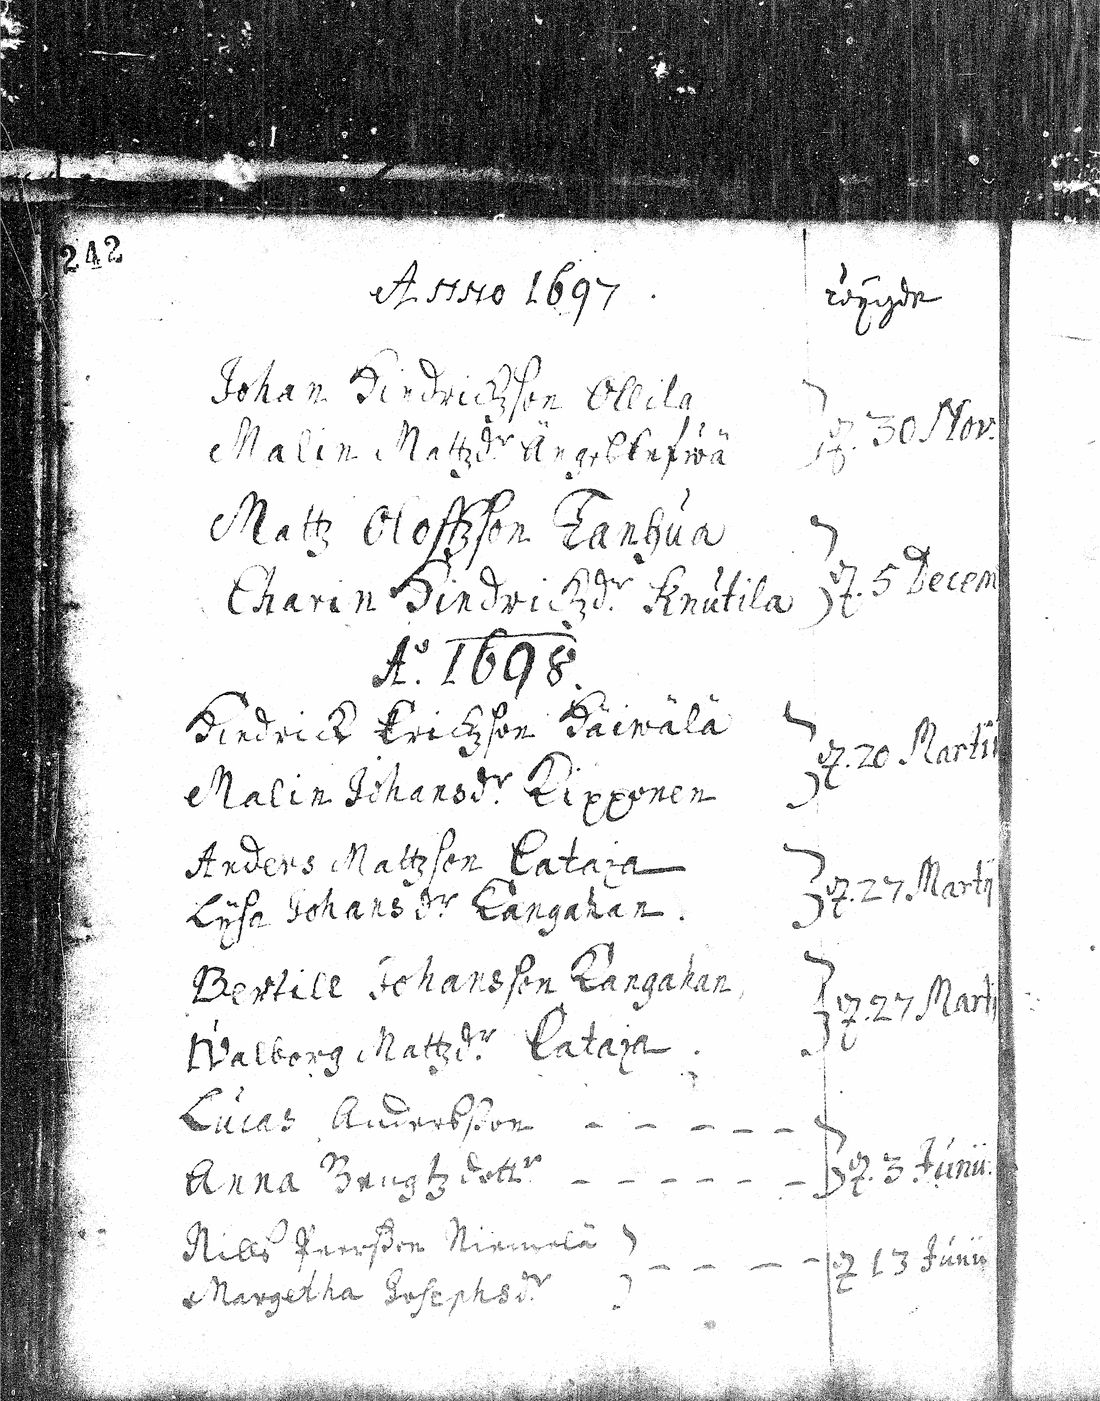 242
Anno 1697
Johan Hindrichzson Ollila
Malin Mattzdr
d. 30 Nov.
Mattz Oloffzson Tanhúa
Charin Hindrichzdr Knútila
d. 5 Decem
Ao. 1698.
Hindrich Erichzson Häiwälä
Malin Johansdr. Kipponen
d. 20 Martii
Anders Mattzson Cataja
Lÿsa Johansdr Kangahan.
d. 27. Martij
Bertill Johansson Kangahan,
Walborg Mattzdr Cataja
d. 27 Marti
Lúcas Andersson - - - - -
Anna Bengtzdottr - - - - - -
d. 3 Júnii.
Nills Peersson Niemelä
Margetha Josephsdr
- - - - d 13 Júnii